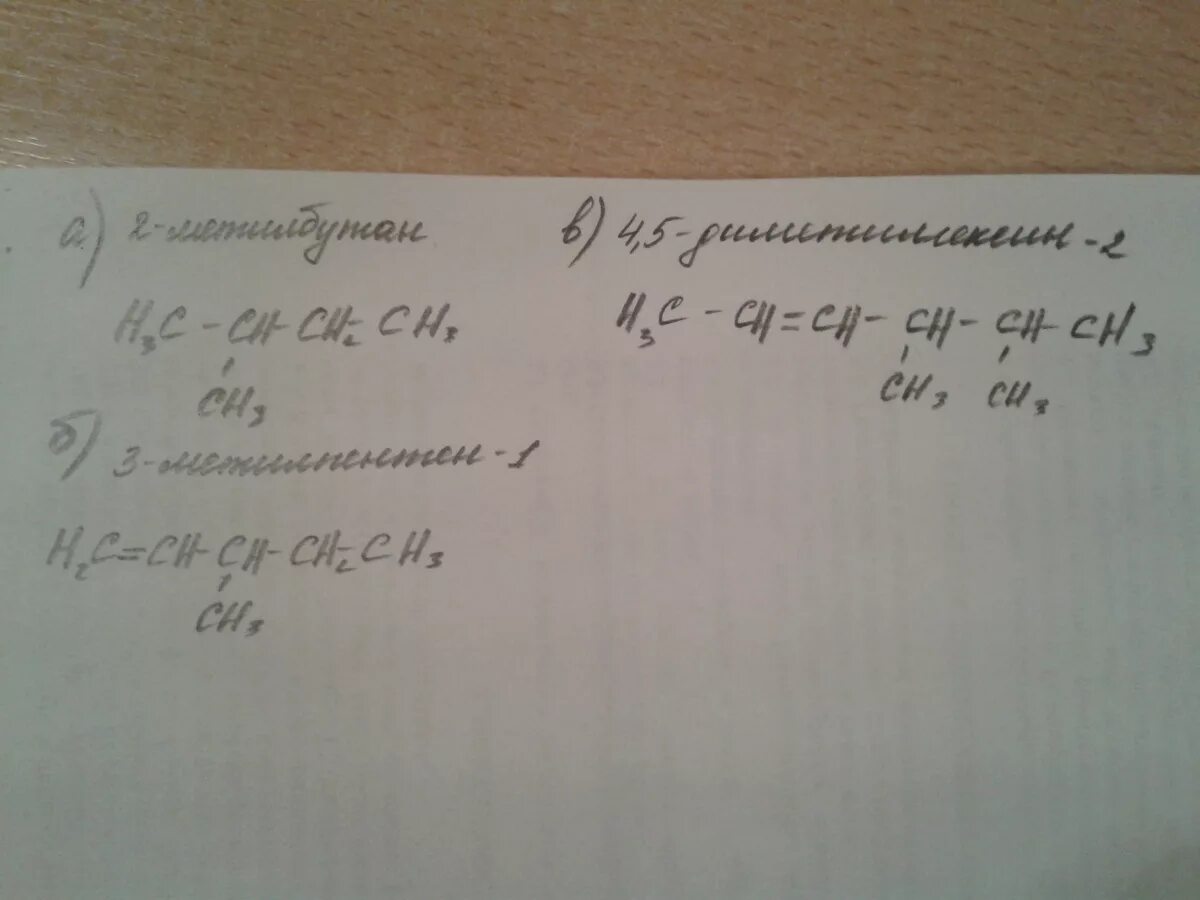 а) 2-метилбутан
H₃C - CH - CH₂ CH₃
CH₃
б) 3-метилпентен-1
H₂C=CH-CH-CH₂-CH₃
CH₃
в) 4,5-диметилгексин-2
H₃C - CH=CH-CH-CH-CH₃
CH₃ CH₃